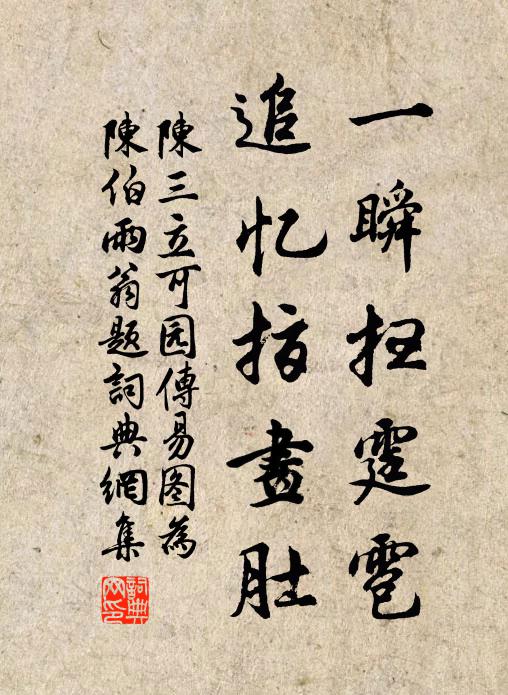 一瞬扫霆雹
追忆指畫肚
陳三立可园傳易图為
陳伯雨翁題詞典網集
詞典网印